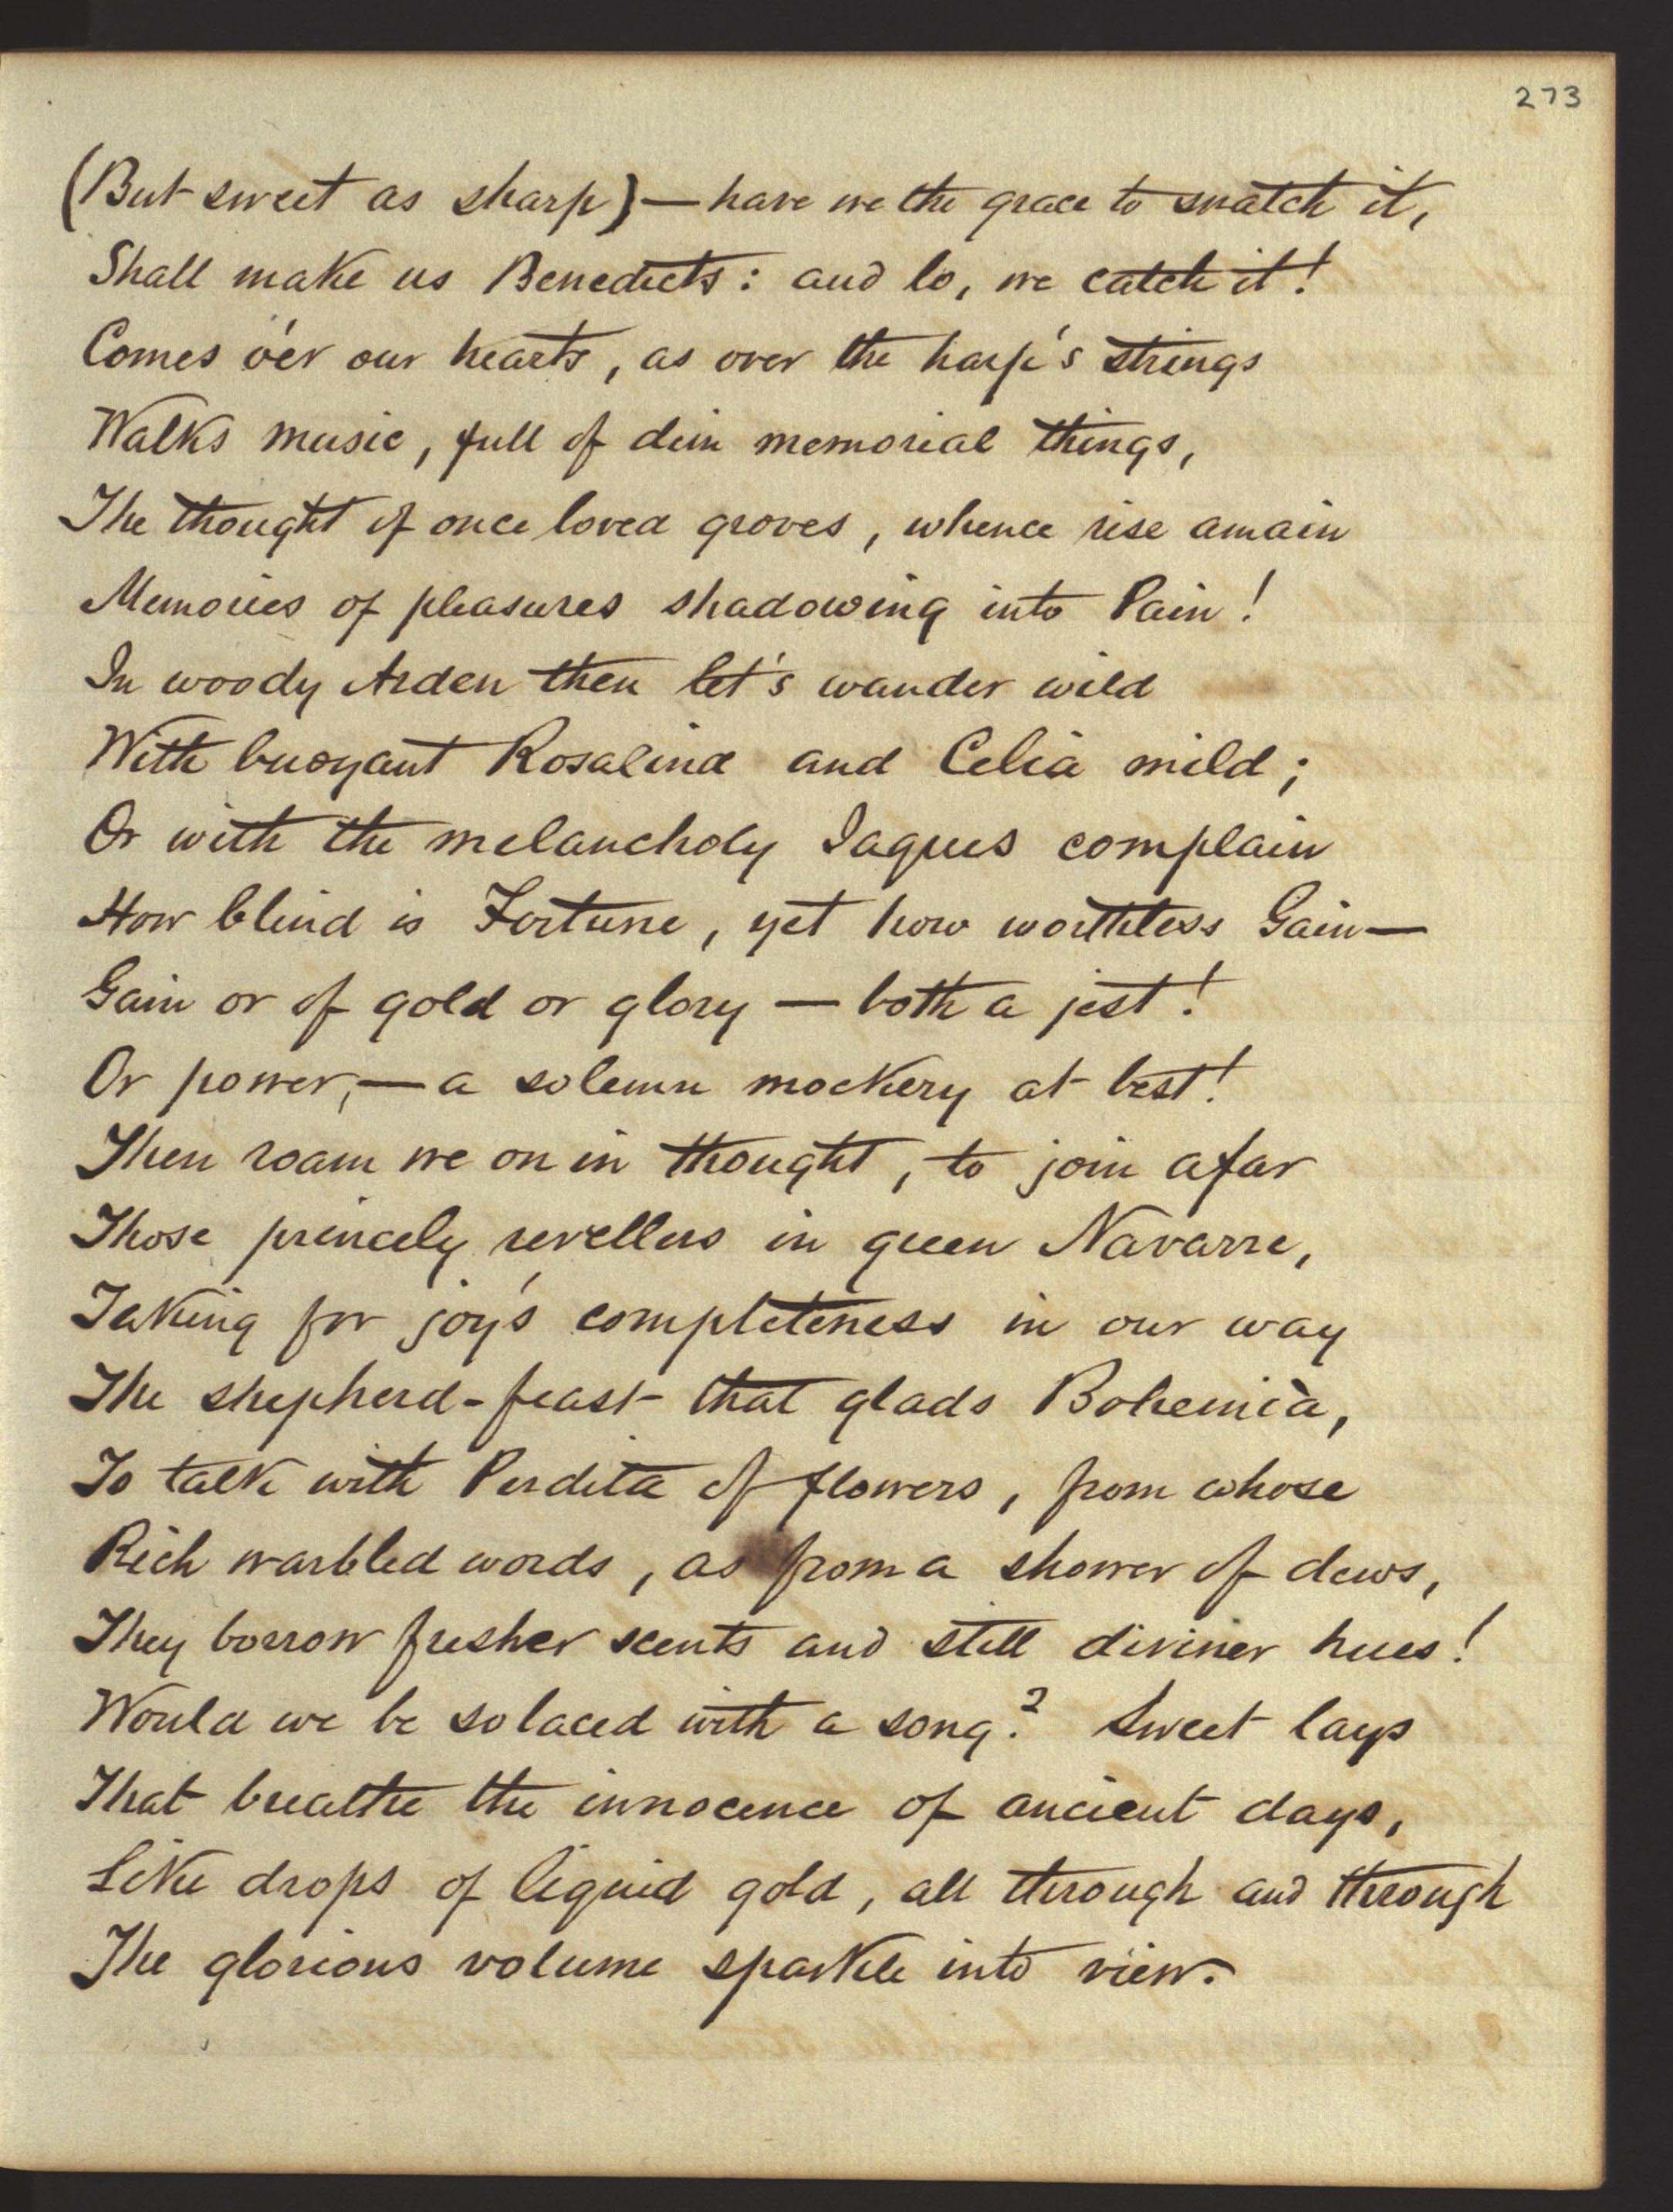 273
(But sweet as sharp)—have we the grace to snatch it,
Shall make us Benedicts: and lo, we catch it!
Comes o'er our hearts, as over the harp's strings
Walks music, full of dim memorial things,
The thought of once loved groves, whence rise amain
Memories of pleasures shadowing into Pain!
In woody Arden then let's wander wild
With buoyant Rosalind and Celia mild;
Or with the melancholy Jaques complain
How blind is Fortune, yet how worthless Gain—
Gain or of gold or glory — both a jest!
Or power,—a solemn mockery at best!
Then roam we on in thought, to join afar
Those princely revellers in green Navarre,
Taking for joy's completeness in our way
The shepherd-feast that glads Bohemià,
To talk with Perdita of flowers, from whose
Rich warbled words, as from a shower of dews,
They borrow fresher scents and still diviner hues!
Would we be solaced with a song? Sweet lays
That breathe the innocence of ancient days,
Like drops of liquid gold, all through and through
The glorious volume sparkle into view.